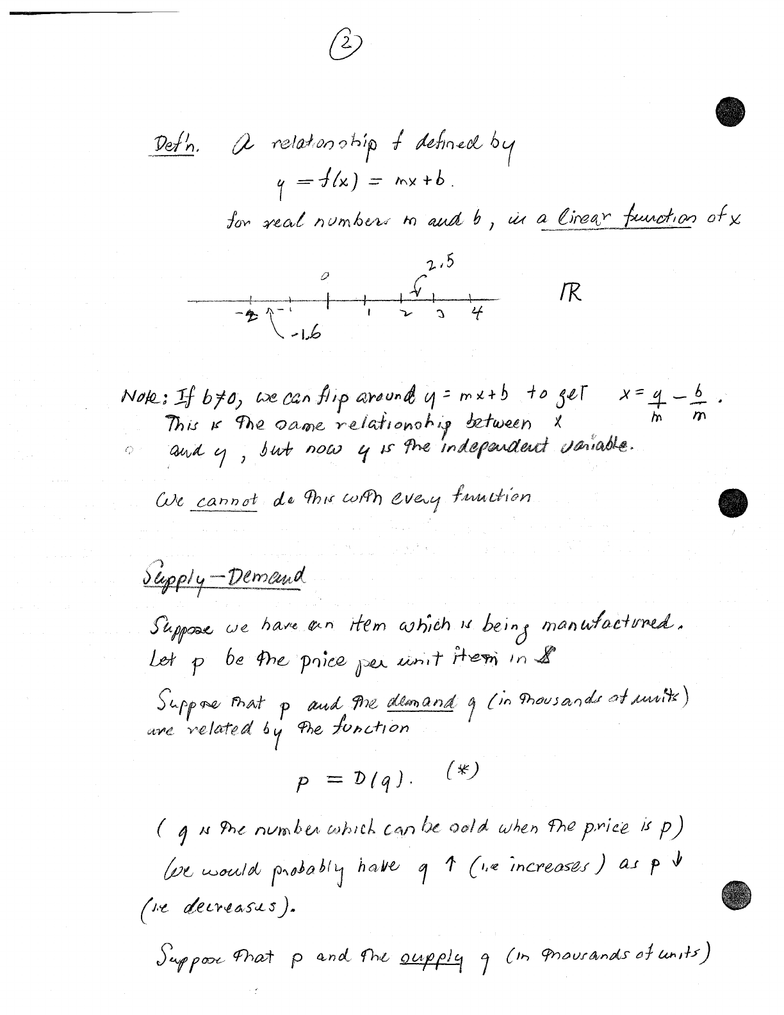 2
Def'n. A relationship f defined by
y = f(x) = mx + b.
for real numbers m and b, is a linear function of x
2.5
0
ℝ
-2 -1 1 2 3 4
-1.6
Note: If b≠0, we can flip around y = mx + b to get x = y/m - b/m.
This is the same relationship between x
and y, but now y is the independent variable.
We cannot do this with every function
Supply-Demand
Suppose we have an item which is being manufactured.
Let p be the price per unit item in $
Suppose that p and the demand q (in thousands of units)
are related by the function
p = D(q). (*)
(q is the number which can be sold when the price is p)
We would probably have q ↑ (i.e increases) as p ↓
(i.e decreases).
Suppose that p and the supply q (in thousands of units)